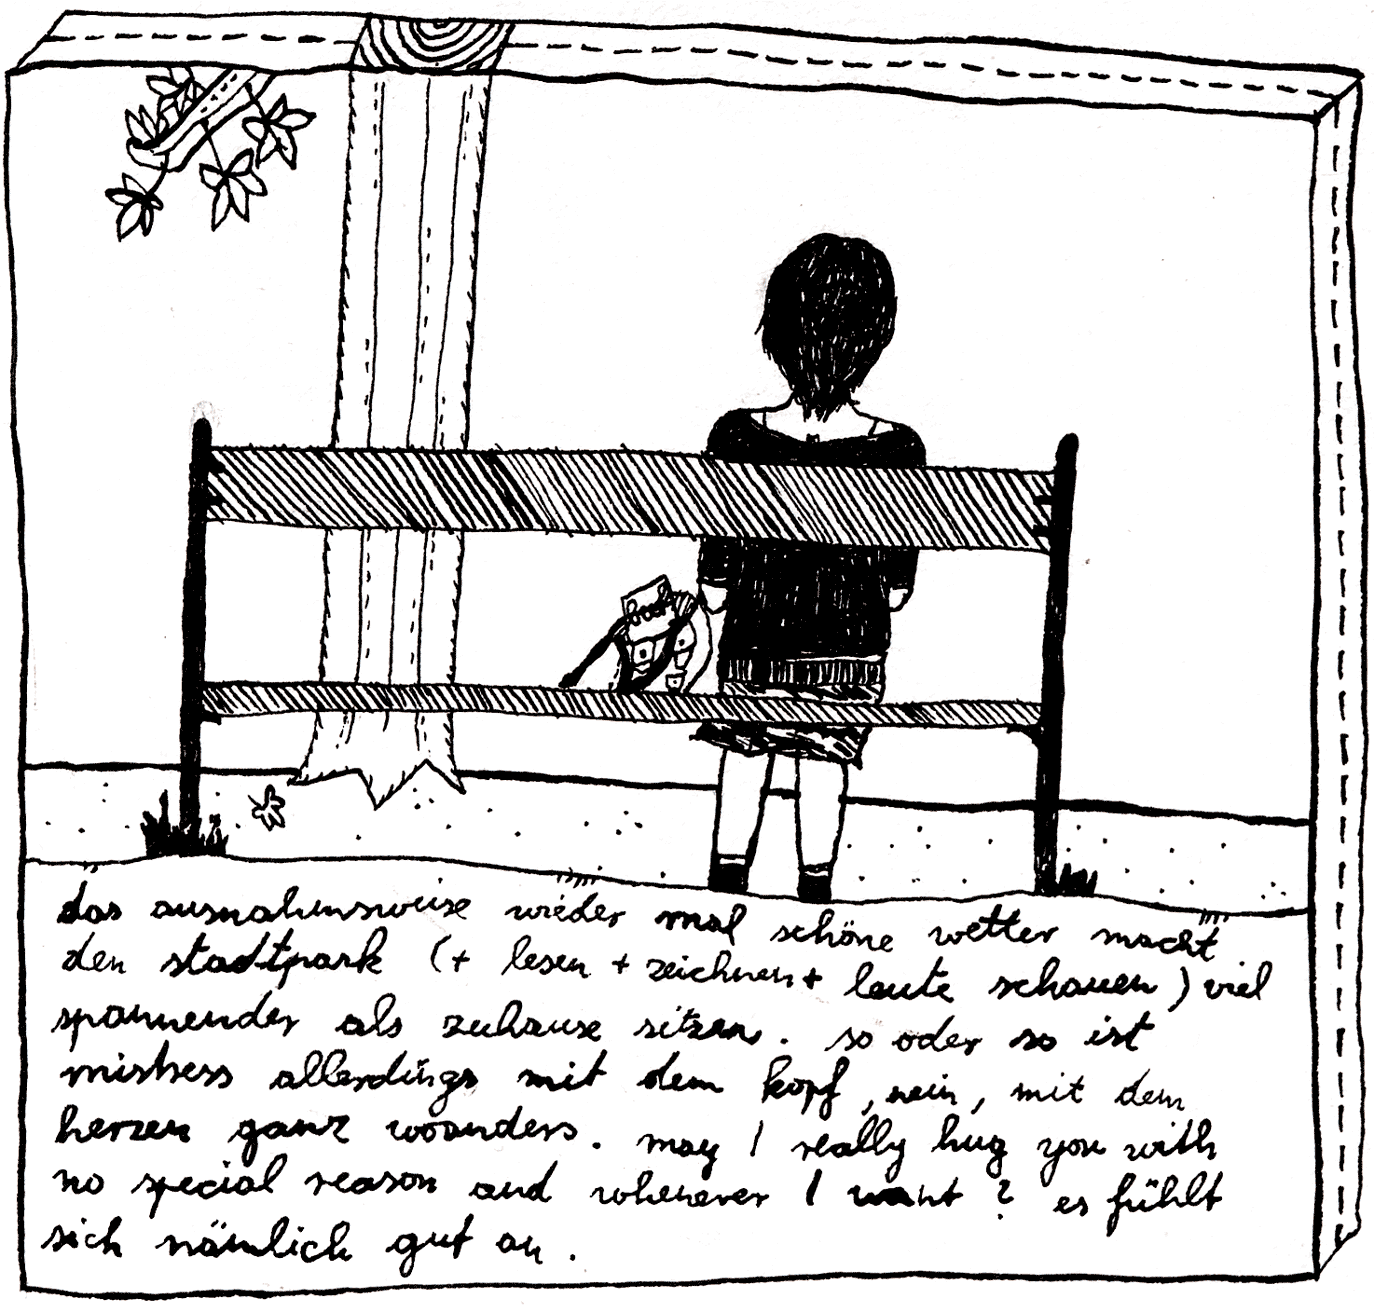 book
das ausnahmsweise wieder mal schöne wetter macht
den stadtpark (+ lesen + zeichnen + leute schauen) viel
spannender als zuhause sitzen. so oder so ist
mistress allerdings mit dem kopf, nein, mit dem
herzen ganz woanders. may I really hug you with
no special reason and whenever I want? es fühlt
sich nämlich gut an.